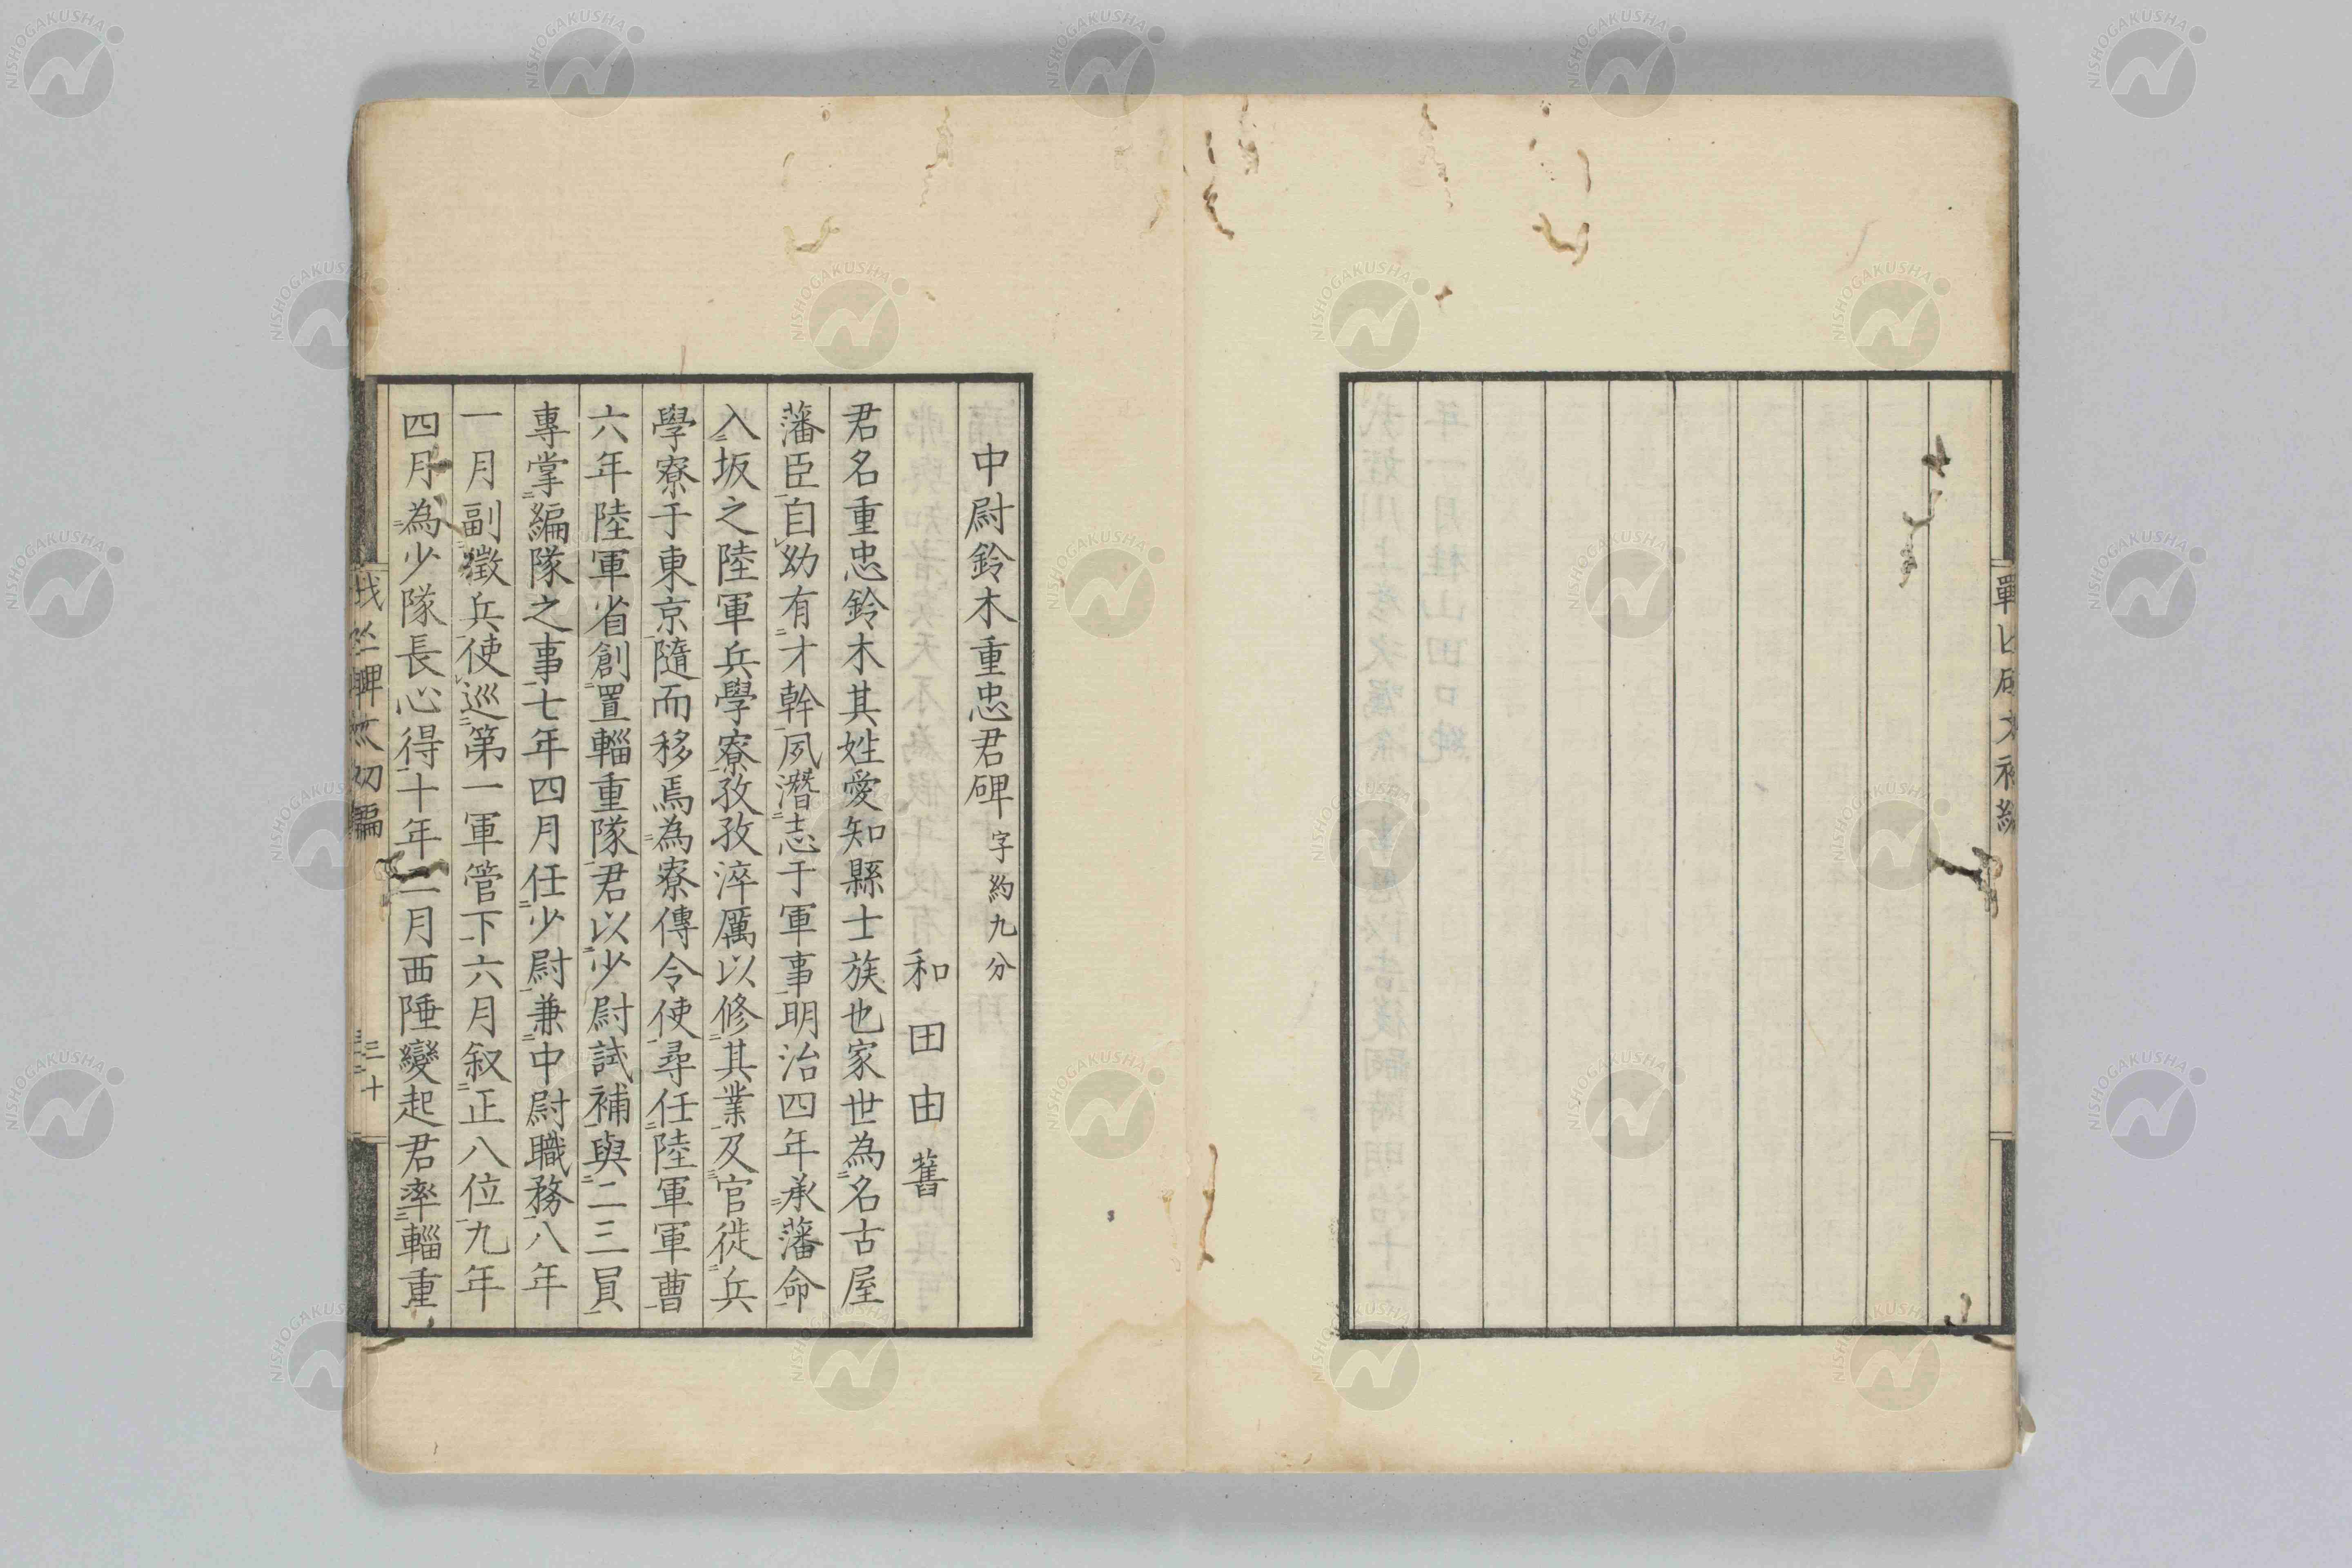 中尉鈴木重忠君碑 字約九分
和田由舊
君名重忠鈴木其姓愛知縣士族也家世為名古屋
藩臣自幼有才幹夙潛志于軍事明治四年承藩命
入坂之陸軍兵學寮孜孜淬厲以修其業及官徙兵
學寮于東京隨而移焉為寮傳令使尋任陸軍軍曹
六年陸軍省創置輜重隊君以少尉試補與二三員
專掌編隊之事七年四月任少尉兼中尉職務八年
一月副徵兵使巡第一軍管下六月叙正八位九年
四月為少隊長心得十年二月西陲變起君率輜重
初編
二十
NISHOGAKUSHA